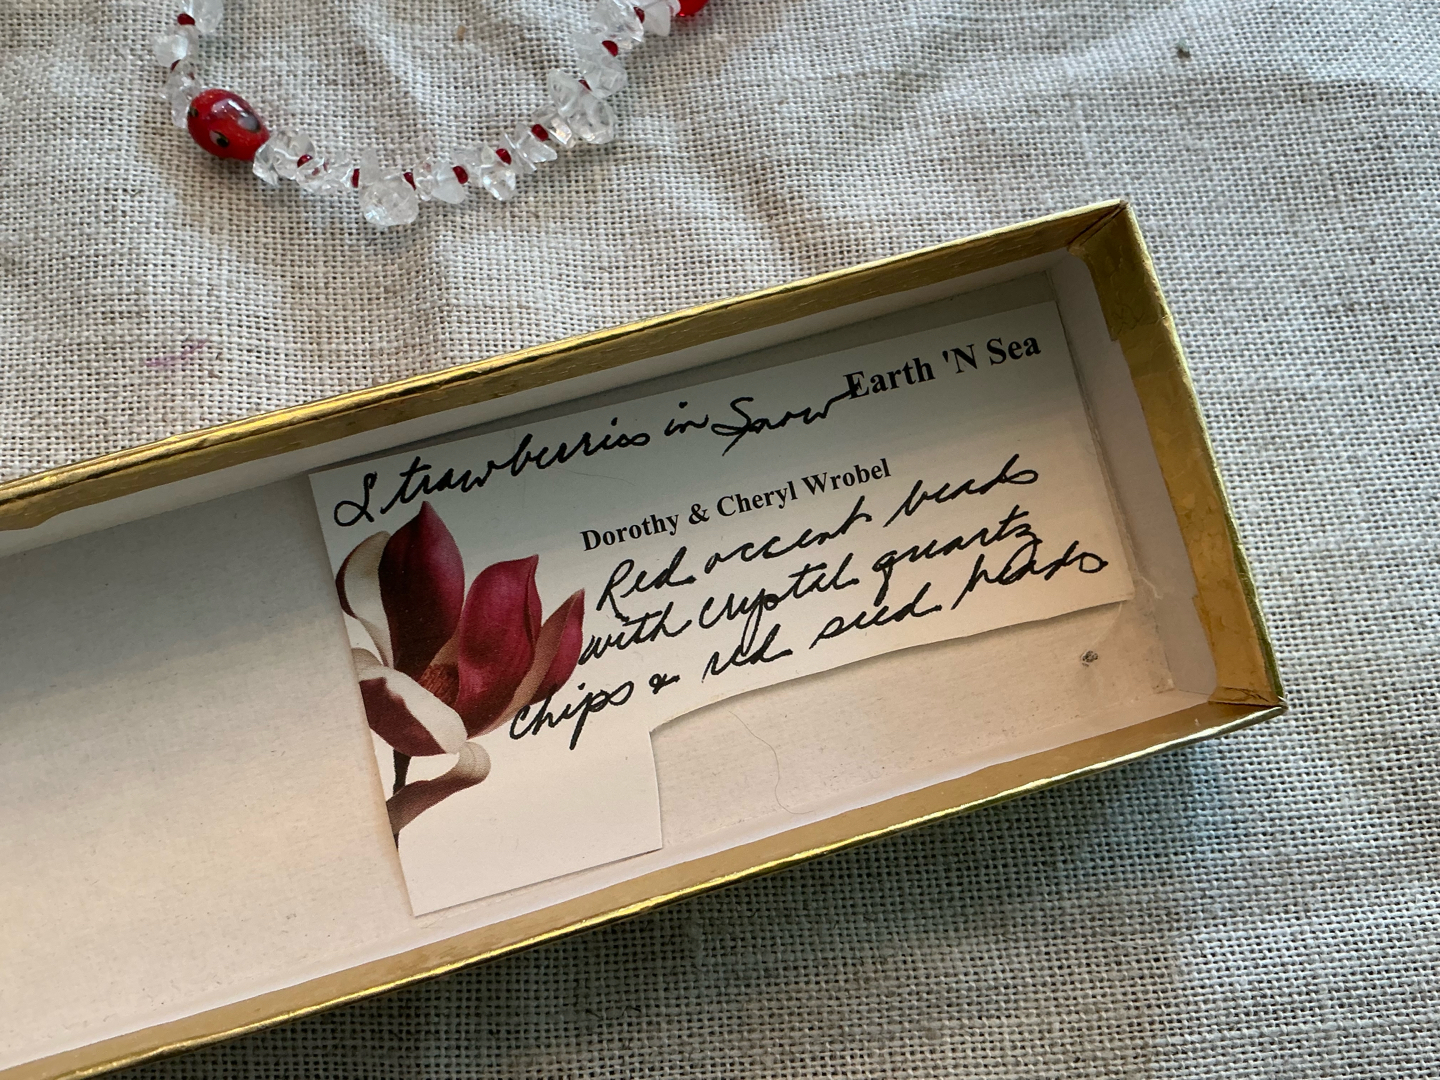 Earth 'N Sea
Strawberries in Snow
Dorothy & Cheryl Wrobel
Red accent beads
with crystal quartz
chips & red seed beads